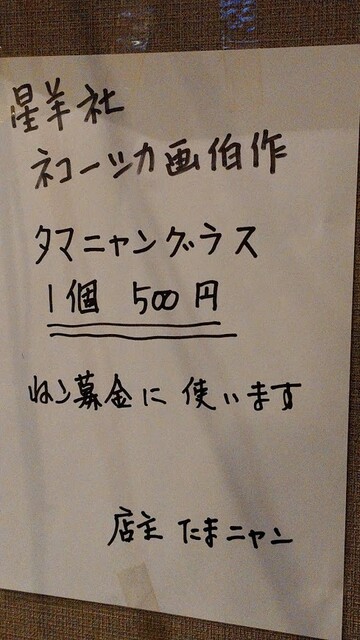 星羊社
ネコーツカ画伯作
タマニャングラス
1個 500円
募金に使います
店主 たまニャン